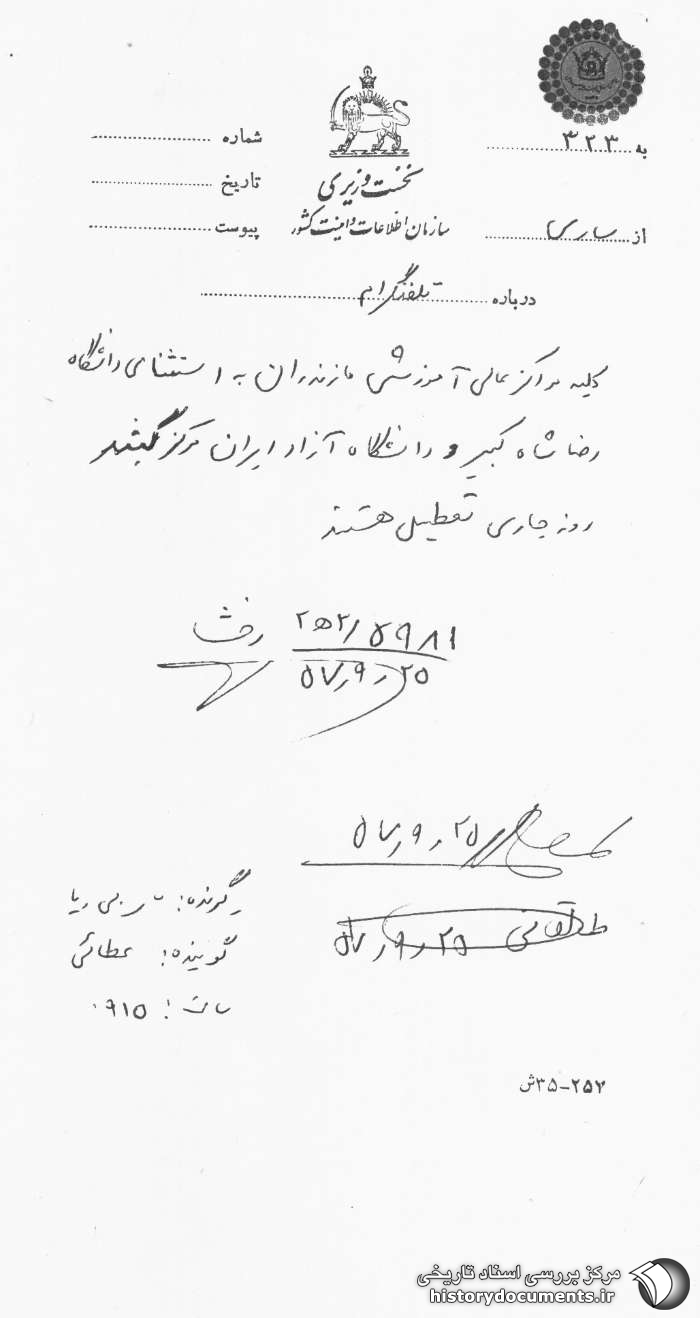 به ۳۲۳
شماره
نخست وزیری
تاریخ
سازمان اطلاعات و امنیت کشور
از ساری
پیوست
درباره تلفنگرام
کلیه مراکز عالی آموزشی مازندران به استثنای دانشگاه
رضا شاه کبیر و دانشگاه آزاد ایران مرکز گنبد
روز جاری تعطیل هستند
۵۷٫۹٫۲۵
۵۷٫۹٫۲۵
گیرنده:
طالقانی ۵۷٫۹٫۲۵
گوینده: عطائی
ساعت: ۰۹۱۵
۲۵۷-۳۵ش
مرکز بررسی اسناد تاریخی
historydocuments.ir